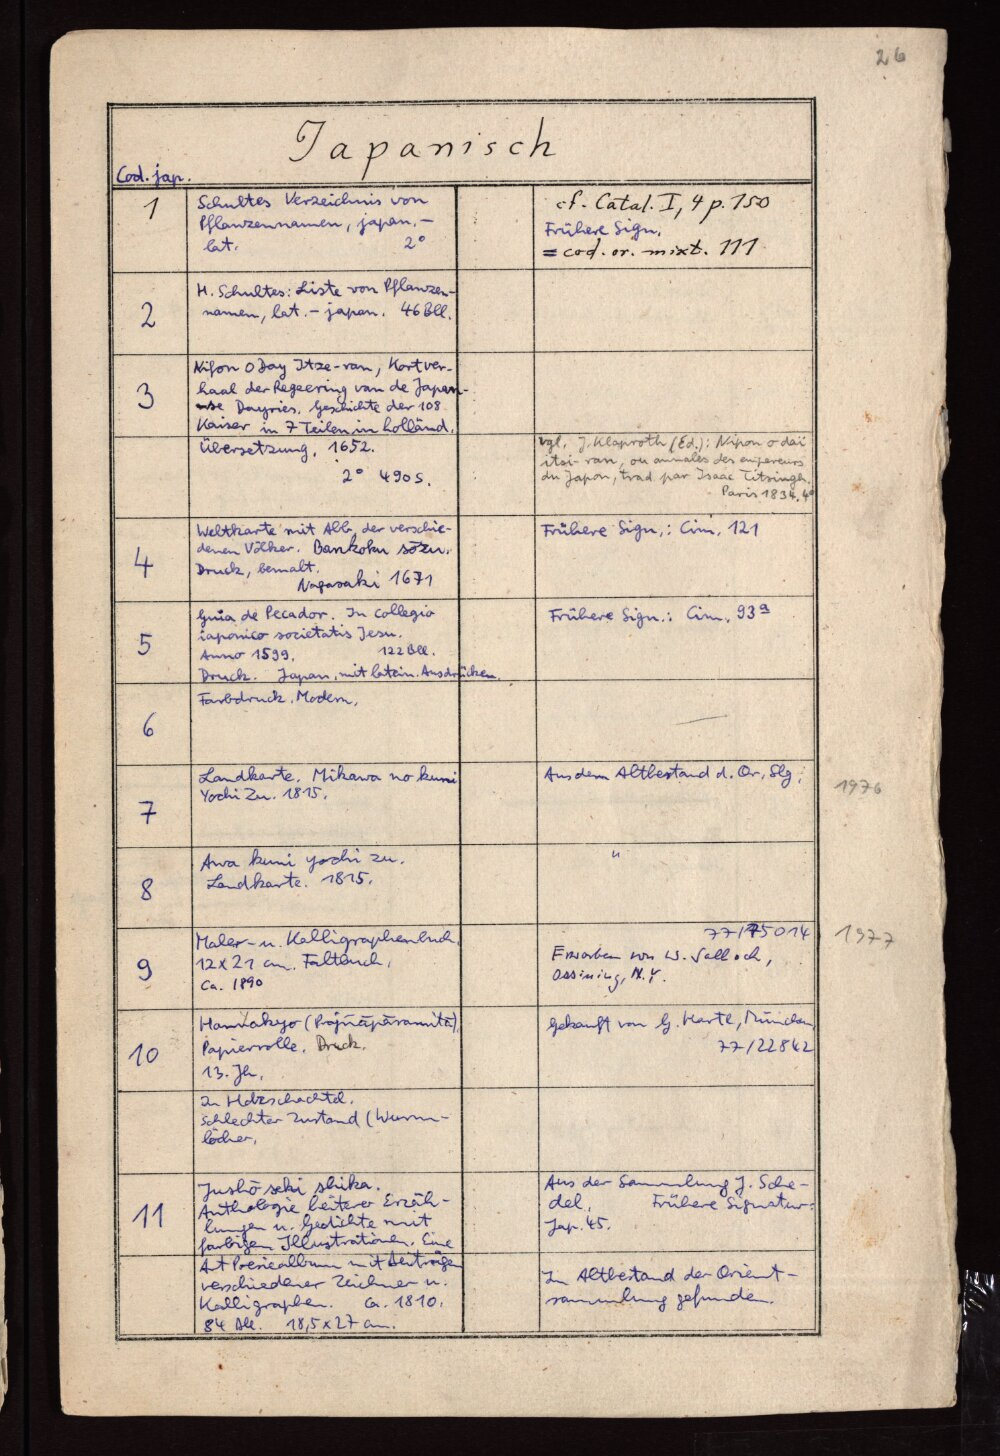 26
Japanisch
Cod. jap.
1
Schultes Verzeichnis von
Pflanzennamen, japan. -
lat. 2°
cf. Catal. I, 4 p. 150
Frühere Sign.
= cod. or. mixt. 111
2
H. Schultes: Liste von Pflanzen-
namen, lat. - japan. 46 Bll.
3
Nifon o Day Itze-ran, Kortver-
haal der Regeering van de Japan-
nse Dayries. Geschichte der 108
Kaiser in 7 Teilen in holländ.
Übersetzung. 1652.
2° 490 S.
vgl. J. Klaproth (Ed.): Nipon o dai
itsi-ran, ou annales des empereurs
du Japon, trad par Isaac Titsingh.
Paris 1834. 4°
4
Weltkarte mit Abb. der verschie-
denen Völker. Bankoku sōzu.
Druck, bemalt.
Nagasaki 1671
Frühere Sign.: Cim. 121
5
Guia de Pecador. In collegio
iaponico societatis Jesu.
Anno 1599. 122 Bll.
Druck. Japan. mit latein. Ausdrücken
Frühere Sign.: Cim. 93a
6
Farbdruck. Modern.
7
Landkarte. Mikawa no kuni
Yochi Zu. 1815.
Aus dem Altbestand d. Or. Slg.
1976
8
Awa kuni yochi zu.
Landkarte. 1815.
"
9
Maler- u. Kalligraphenbuch.
12 x 21 cm. Faltbuch.
Ca. 1890
77/75014
Erworben von W. Salloch,
Ossining, N.Y.
1977
10
Hannakyo (Prajñāpāramitā)
Papierrolle. Druck.
13. Jh.
Gekauft von G. Hartl, München
77/22842
In Holzschachtel.
Schlechter Zustand (Wurm-
löcher.
11
Jushō seki shika.
Anthologie heiterer Erzäh-
lungen u. Gedichte mit
farbigen Illustrationen. Eine
Art Poesiealbum mit Beiträgen
verschiedener Zeichner u.
Kalligraphen. Ca. 1810.
84 Abb. 18,5 x 27 cm.
Aus der Sammlung J. Sche-
del. Frühere Signatur:
Jap. 45.
Im Altbestand der Orient-
sammlung gefunden.